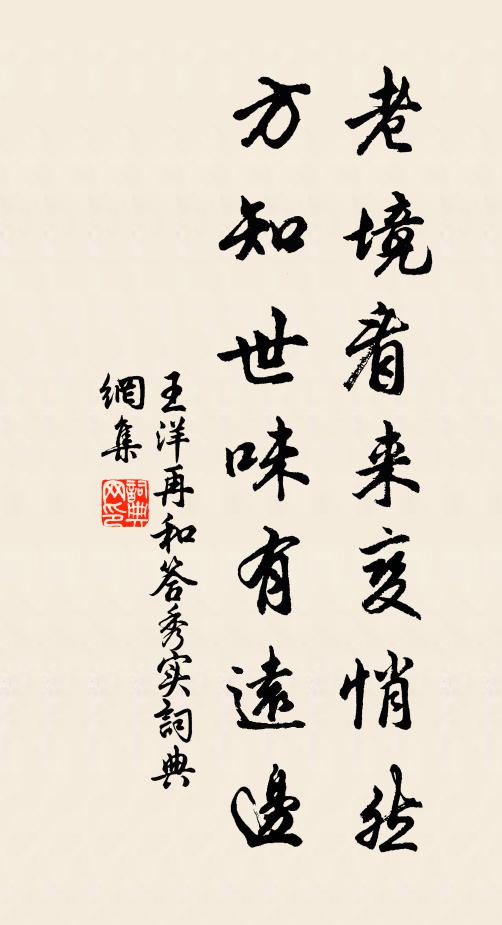 老境看来交悄然
方知世味有遠邊
王洋再和答秀实詞典
網集
詞典
网印